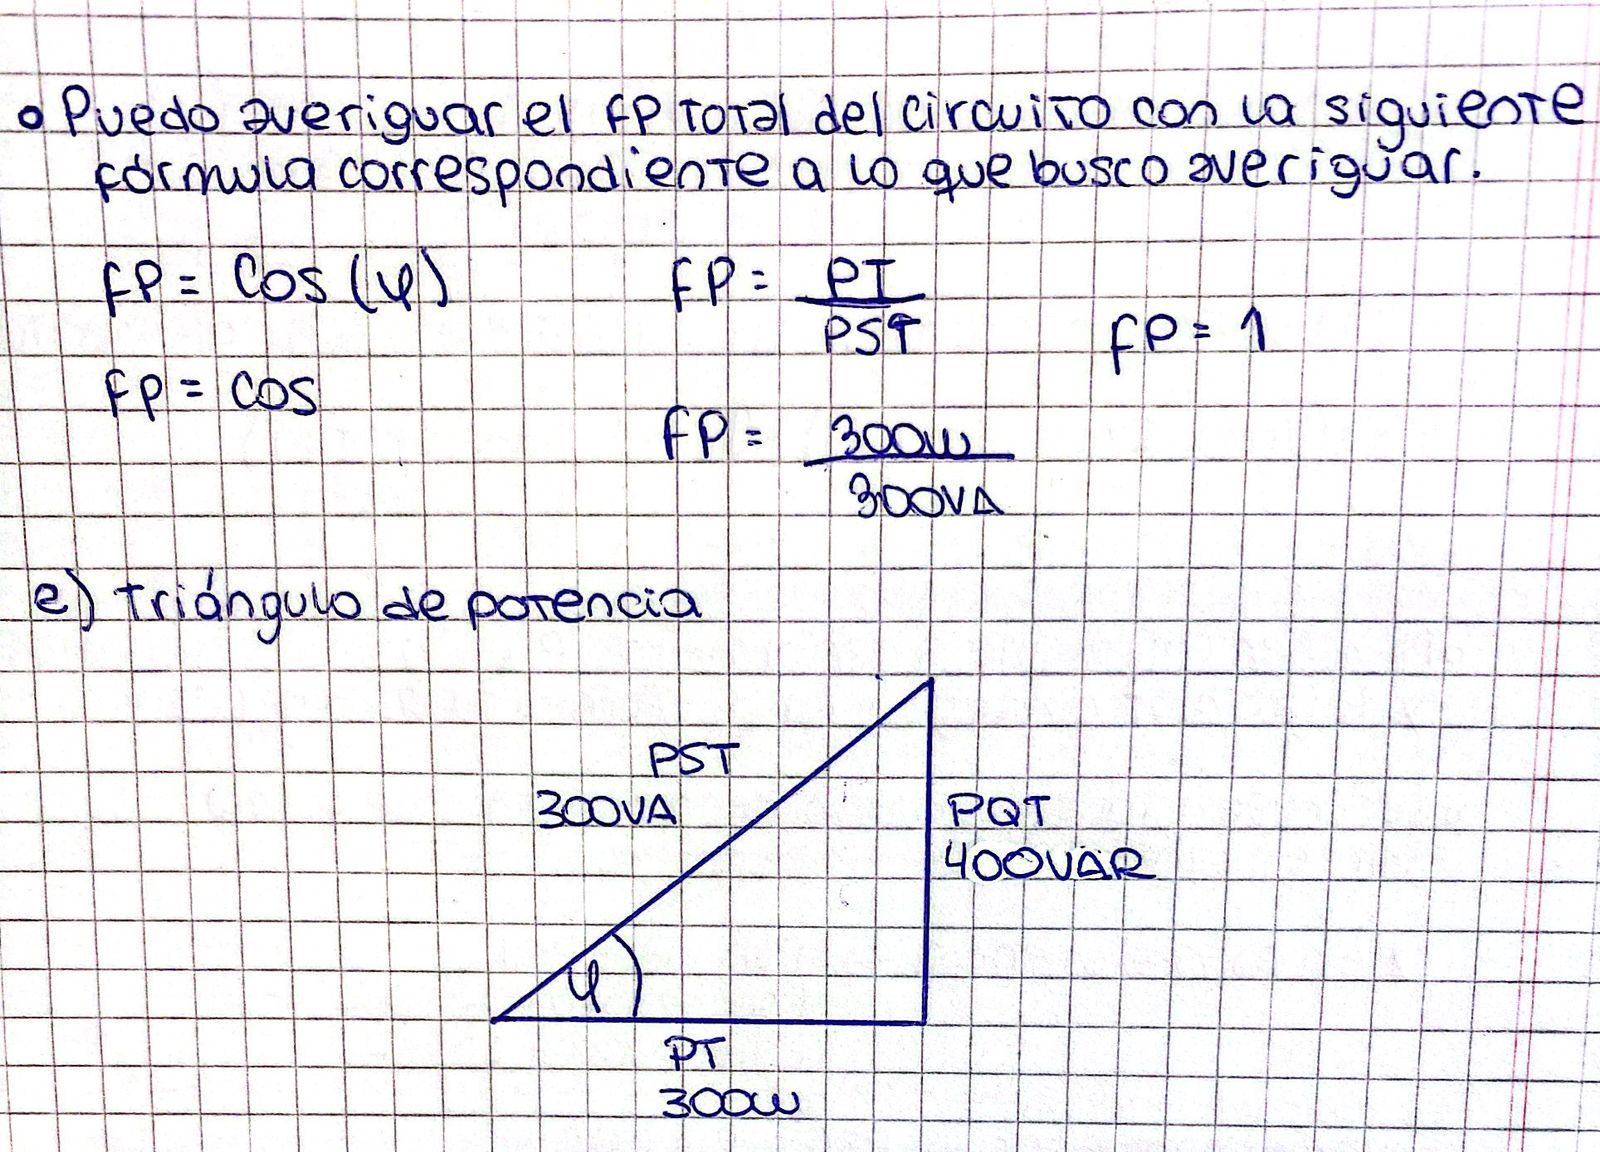 • Puedo averiguar el FP Total del circuito con la siguiente
fórmula correspondiente a lo que busco averiguar.
FP = Cos (φ)
FP = PT / PST
FP = 1
FP = Cos
FP = 300W / 300VA
e) Triángulo de potencia
PST
300VA
PQT
400VAR
φ
PT
300W